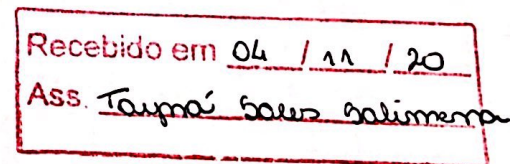 Recebido em 04 / 11 / 20
Ass. Sales Salimena